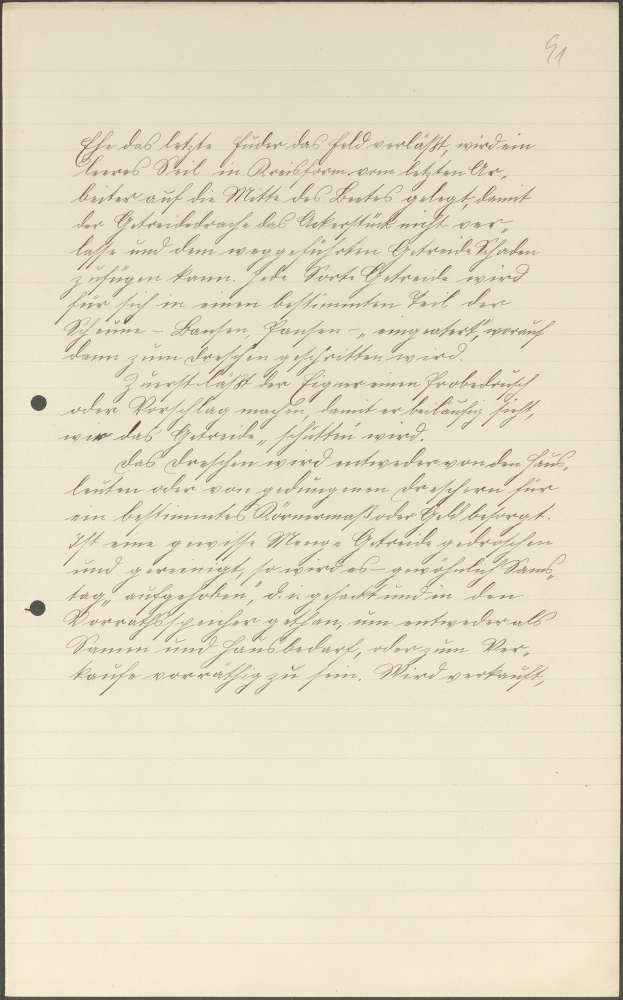 91
Ehe das letzte Fuder das Feld verläßt, wird ein
leeres Seil in Kreisform vom letzten Ar-
beiter auf die Mitte des Beetes gelegt, damit
der Getreidedrache das Ackerstück nicht ver-
lasse und dem weggeführten Getreide Schaden
zufügen kann. Jede Sorte Getreide wird
für sich in einen bestimmten Teil der
Scheune - Bansen, Pansen - „eingeastert", worauf
dann zum Dreschen geschritten wird.
Zuerst läßt der Eigner einen Probedrusch
oder Vorschlag machen, damit er beiläufig sieht,
wie das Getreide „schütten" wird.
Das Dreschen wird entweder von den Haus-
leuten oder von gedungenen Dreschern für
ein bestimmtes Körnermaß oder Geld besorgt.
Ist eine gewisse Menge Getreide gedroschen
und gereinigt, so wird es - gewöhnlich Sams-
tag „aufgehoben", d. i. gesackt und in den
Vorrathsspeicher gethan, um entweder als
Samen und Hausbedarf, oder zum Ver-
kaufe vorräthig zu sein. Wird verkauft,